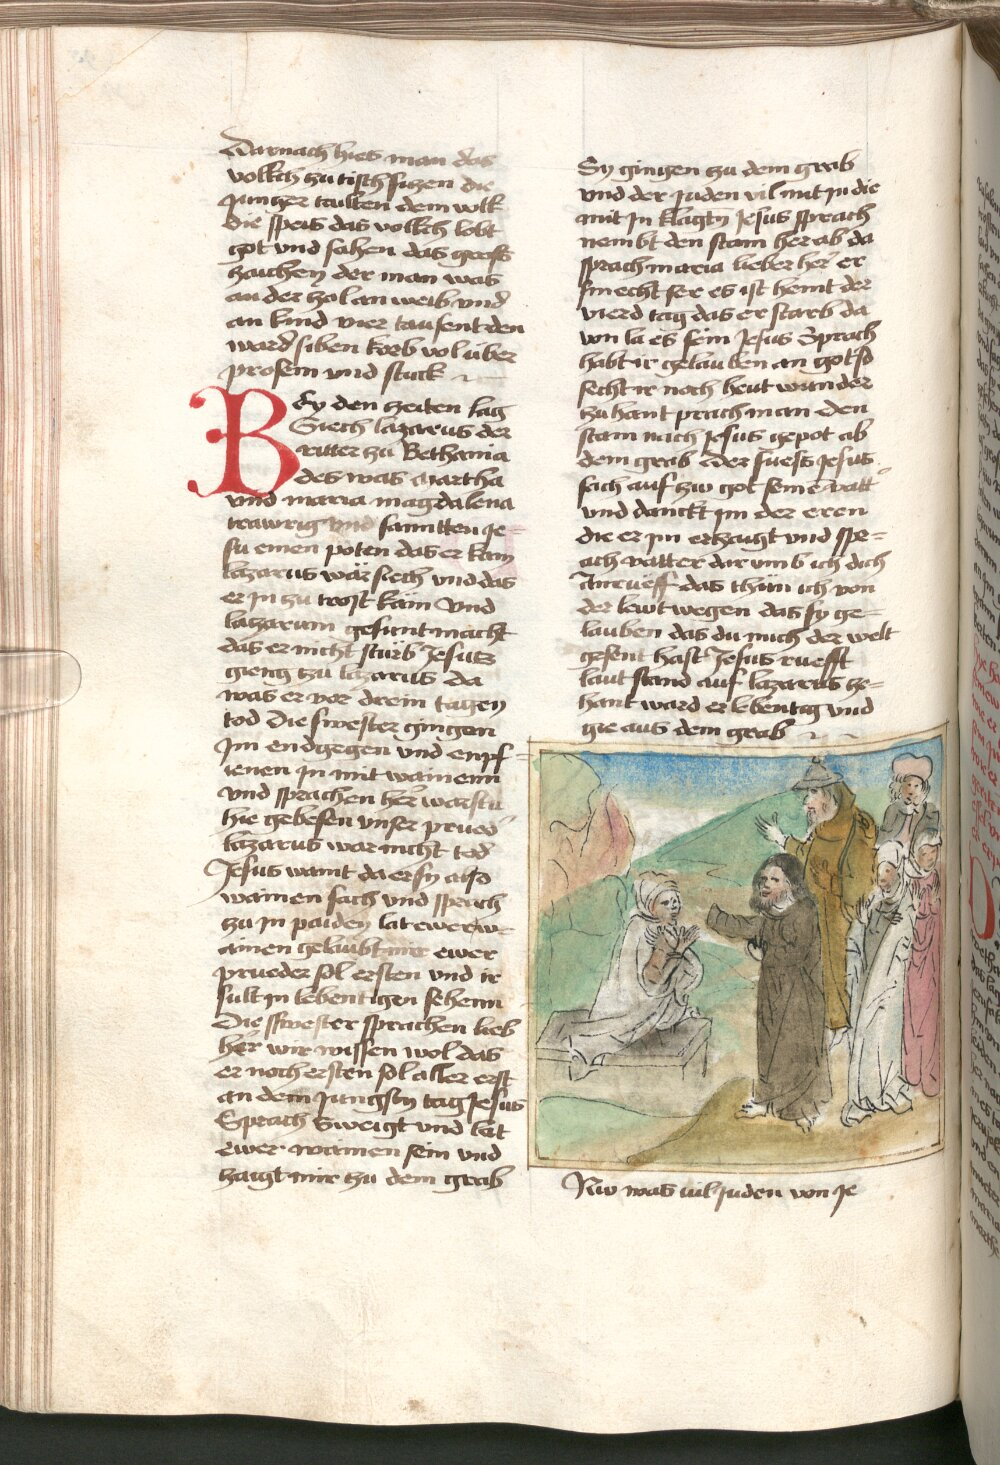 Darnach hies man das
vollkch zu tisch siczen die
Junger tailten dem volk
die speis das vollkch lobt
got und sahen das gross
zaichen der man was
an der zol an weib und
an kind vier tausent den
ward siben korb vol über
prosem und stuck
Bey den zeiten lag
Siech lazarus der
ritter zu Bethania
des was Martha
und maria magdalena
trawrig und sanntten Je-
su einen poten das er kam
lazarus wär siech und das
er in zu trost käm Und
lazarum gesunt macht
das er nicht stürb Jesus
gieng zu lazarus da
was er vor drein tagen
tod Die swester gingen
Im endgegen und enpf
iengen in mit wainenn
und sprachen her warstu
hie gebesen unser prued
lazarus wär nicht tod
Jesus waint da er sy also
wainen sach und sprach
zu in paiden lat ewer w-
ainen gelaubt mir ewer
prueder sol ersten und ir
sult in lebentigen sehenn
Die swester sprachen lieb
her wir wissen wol das
er noch ersten sol aller erst
an dem Jungstn tag Jesus
Sprach Sweigt und lat
ewer wainen sein und
zaigt mir zu dem grab
Sy gingen zu dem grab
und der Juden vil mit in die
mit in klagtn Jesus sprach
nembt den stain herab da
sprach maria lieber her er
smecht ser es ist hewt der
vierd tag das er starb da
von la es sein Jesus Sprach
habt ir gelauben an got so
secht ir noch heut wunder
zu hant prach man den
stain nach Jesus gepot ab
dem grab Der suess Jesus
sach auf zw got seinē vatt
und danckt im der eren
die er im erzaigt und spr-
ach vatter dar umb ich dich
Anrueff das thün ich von
der lewt wegen das sy ge-
lauben das du mich der welt
gesent hast Jesus ruefft
laut stand auf lazarus ze-
hant ward er lebentig und
gie aus dem grab
Nw was vil Juden von Je